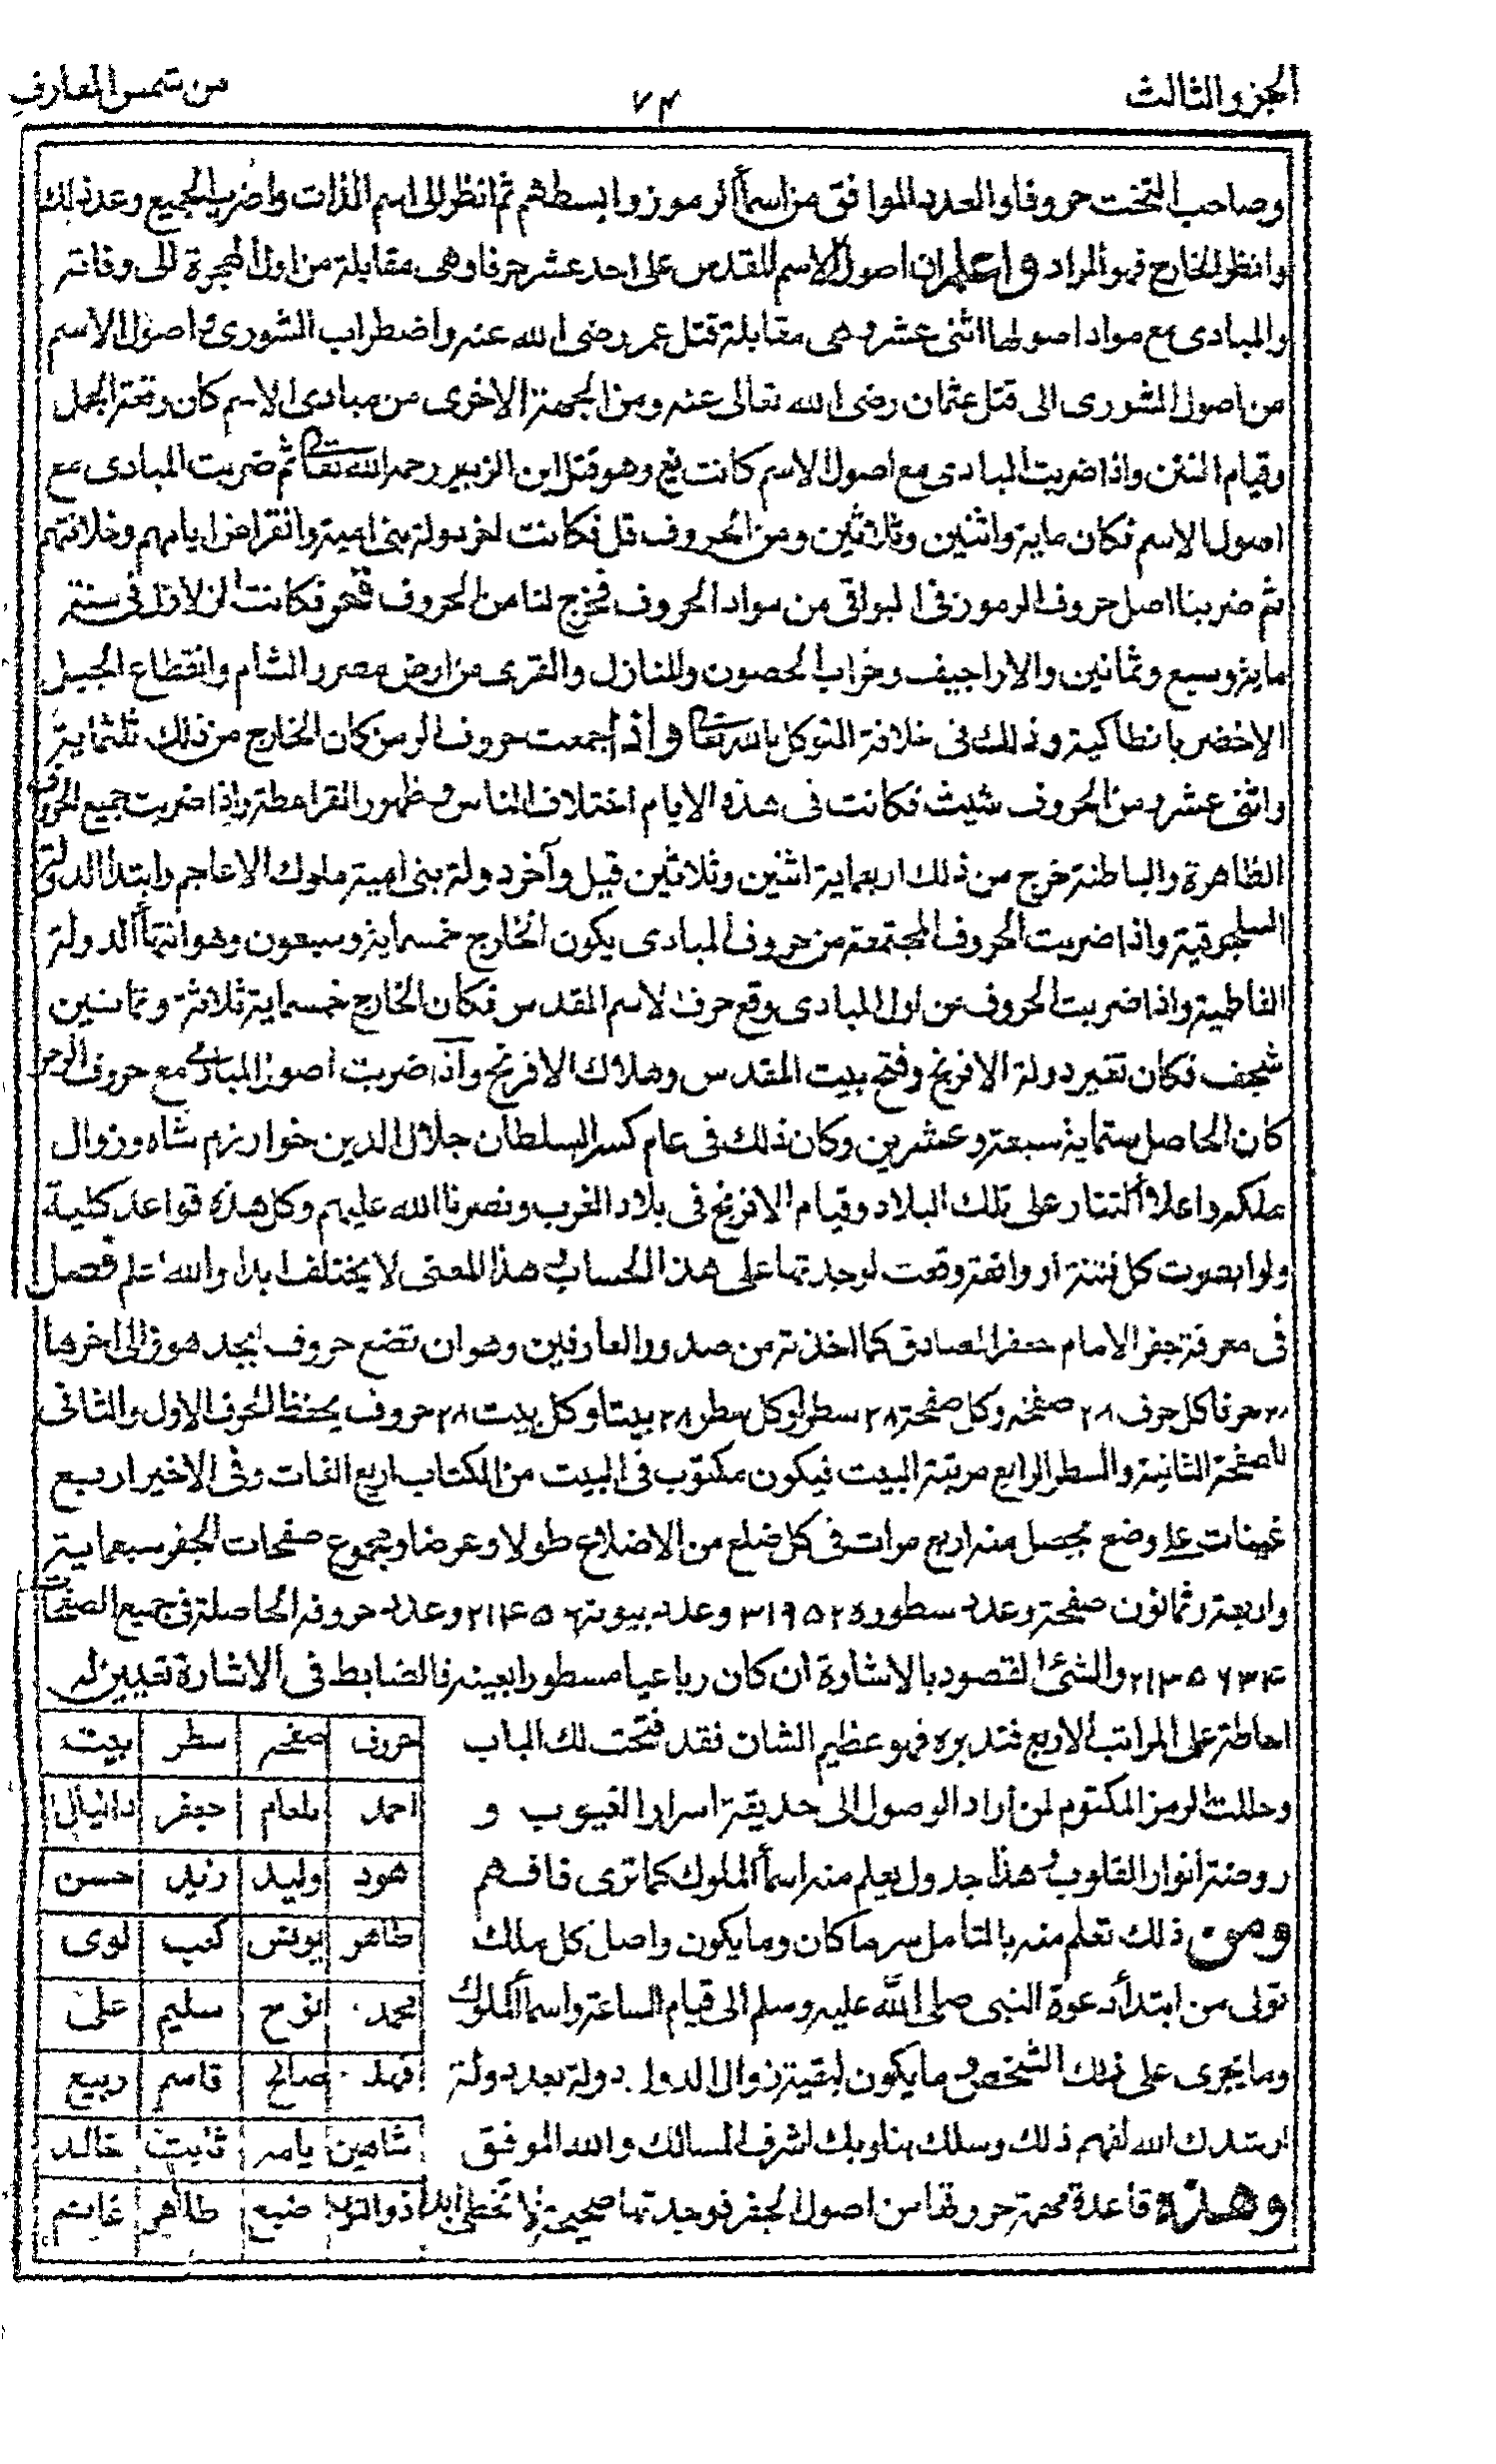 الجزء الثالث
٧٤
من شمس المعارف
وصاحب التخت حروفا والعدد الموافق من اسمأ الرموز وابسطهم ثم انظر الى اسم الذات واضرب الجميع وعد ذلك
وانظر الخارج فهو المراد واعلم ان اصول الاسم المقدس على احد عشر حرفا وهى مقابلة من اول الهجرة الى وفاته
والمبادى مع مواد اصولها اثنى عشر وهى مقابلة قتل عمر رضى الله عنه واضطراب الشورى واصول الاسم
من اصول الشورى الى قتل عثمان رضى الله تعالى عنه ومن الجهة الاخرى من مبادى الاسم كان وقعة الجمل
وقيام الفتن واذا ضربت المبادى مع اصول الاسم كانت فع وهو قتل ابن الزبير رحمه الله تعالى ثم ضربت المبادى مع
اصول الاسم فكان ماية واثنين وثلاثين ومن الحروف قلب فكانت اخر دولة بنى امية وانقراض ايامهم وخلافتهم
ثم ضربنا اصل حروف الرموز فى البواقى من سواد الحروف فخرج لنا من الحروف فكانت الزلازل فى سنة
ماية وسبع وثمانين والاراجيف وخراب الحصون والمنازل والقرى من ارض مصر والشام وانقطاع الجبل
الاخضر بانطاكية وذلك فى خلافة المتوكل بالله تعالى واذا جمعت حروف الرمز كان الخارج من ذلك ثلثماية
واثنى عشر ومن الحروف شيث فكانت فى هذه الايام اختلاف الناس وظهور القرامطة واذا ضربت جميع الحروف
الظاهرة والباطنة خرج من ذلك اربعماية اثنين وثلاثين قيل وآخر دولة بنى امية ملوك الاعاجم وابتدا الدولة
السلجوقية واذا ضربت الحروف المجتمعة من حروف المبادى يكون الخارج خمسماية وسبعون وهو انتهأ الدولة
الفاطمية واذا ضربت الحروف من اول المبادى وقع حرف الاسم المقدس فكان الخارج خمسماية ثلاثة وثمانين
فكان تغير دولة الافرنج وفتح بيت المقدس وهلاك الافرنج وآذا ضربت اصول المبادى مع حروف الوحى
كان الحاصل ستماية سبعة وعشرين وكان ذلك فى عام كسر السلطان جلال الدين خوارزم شاه وزوال
ملكه واعلأ التتار على تلك البلاد وقيام الافرنج فى بلاد الغرب ونصرنا الله عليهم وكل هذه قواعد كلية
ولو ابصرت كل فتنة او واقعة وقعت لوجدتها على هذا الحساب فى هذا المعتى لا يختلف ابدا والله اعلم فصل
فى معرفة جفر الامام جعفر الصادق كما اخذته من صدور العارفين وهو ان تضع حروف ابجد هوز الى اخرها
٢٨ حرفا كل حرف ٢٨ صفحة وكل صفحة ٢٨ سطر وكل سطر ٢٨ بيتا وكل بيت ٢٨ حروف يحفظ الحرف الاول والثانى
للصفحة الثانية والسطر الرابع مرتبة البيت فيكون مكتوب فى البيت من الكتاب اربع الفات وفى الاخير اربع
غينات على وضع يحصل منه اربع مرات فى كل ضلع من الاضلاع طولا وعرضا ومجموع صفحات الجفر سبعماية
واربعة وثمانون صفحة وعدد سطوره ٣١٩٥٢ وعدد بيوته ٢١٤٥٠٦ وعدد حروفه الحاصلة فى جميع الصفحات
٢١٣٥٦٣٤ والشئ المقصود بالاشارة ان كان رباعيا مسطورا بعينه فالضابط فى الاشارة تعيين له
احاطة على المراتب الاربع فتدبره فهو عظيم الشان فقد فتحت لك الباب
وحللت الرمز المكتوم لمن اراد الوصول الى حديقة اسرار الغيوب و
روضة انوار القلوب وهذا جدول يعلم منه اسمأ الملوك كما ترى فافهم
ومن ذلك تعلم منه بالتامل سر ما كان وما يكون واصل كل ملك
تولى من ابتدأ دعوة النبى صلى الله عليه وسلم الى قيام الساعة واسمأ الملوك
وما يجرى على ذلك الشخص وما يكون لبقية زوال الدول دولة بعد دولة
ارشدك الله لفهم ذلك وسلك بنا وبك اشرف المسالك والله الموفق
وهذه قاعدة مهمة حررتها من اصول الجفر فوجدتها صحيحة لا تخطى ابدا
حروف صفحه سطر بيت
احمد بلعام جعفر دانيال
هود وليد زيد حسن
طاهر يونس كعب لوى
محمد نوح سليم على
فهد صالح قاسم ربيع
شاهين يامر ثابت خالد
ذو النون ضبع طاهر غانم